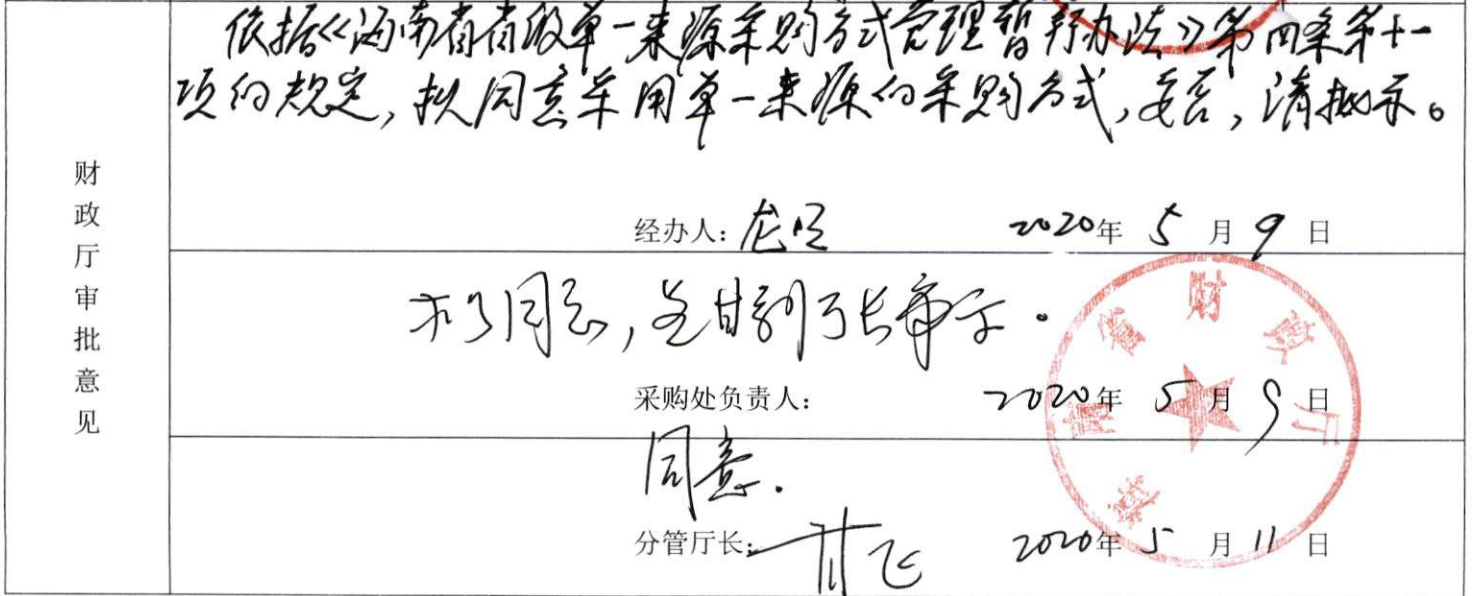 依据《海南省省级单一来源采购方式管理暂行办法》第四条第十一
项的规定,拟同意采用单一来源的采购方式,妥否,请批示。
财政厅审批意见
经办人:
2020年 5 月 9 日
拟同意,呈甘副厅长审示。
采购处负责人:
2020年 5 月 9 日
同意.
分管厅长: 甘飞
2020年 5 月 11 日
海南省财政厅